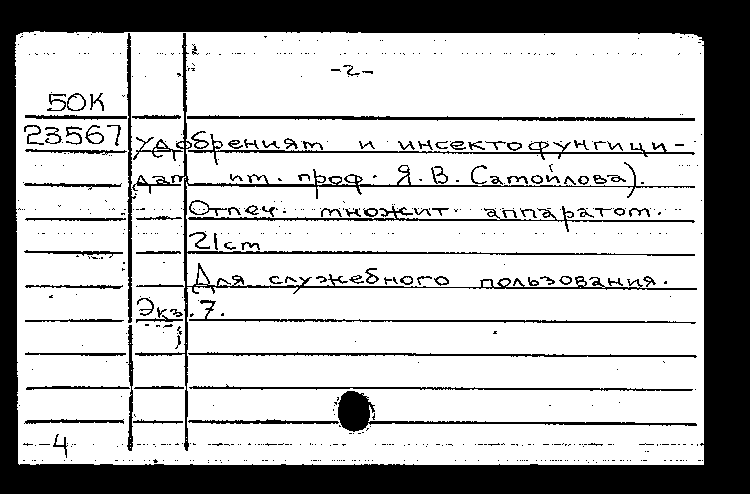 -2-
50К
23567
удобрениям и инсектофунгици-
дам им. проф. Я.В. Самойлова).
Отпеч. множит. аппаратом.
21cm
Для служебного пользования.
Экз. 7.
4